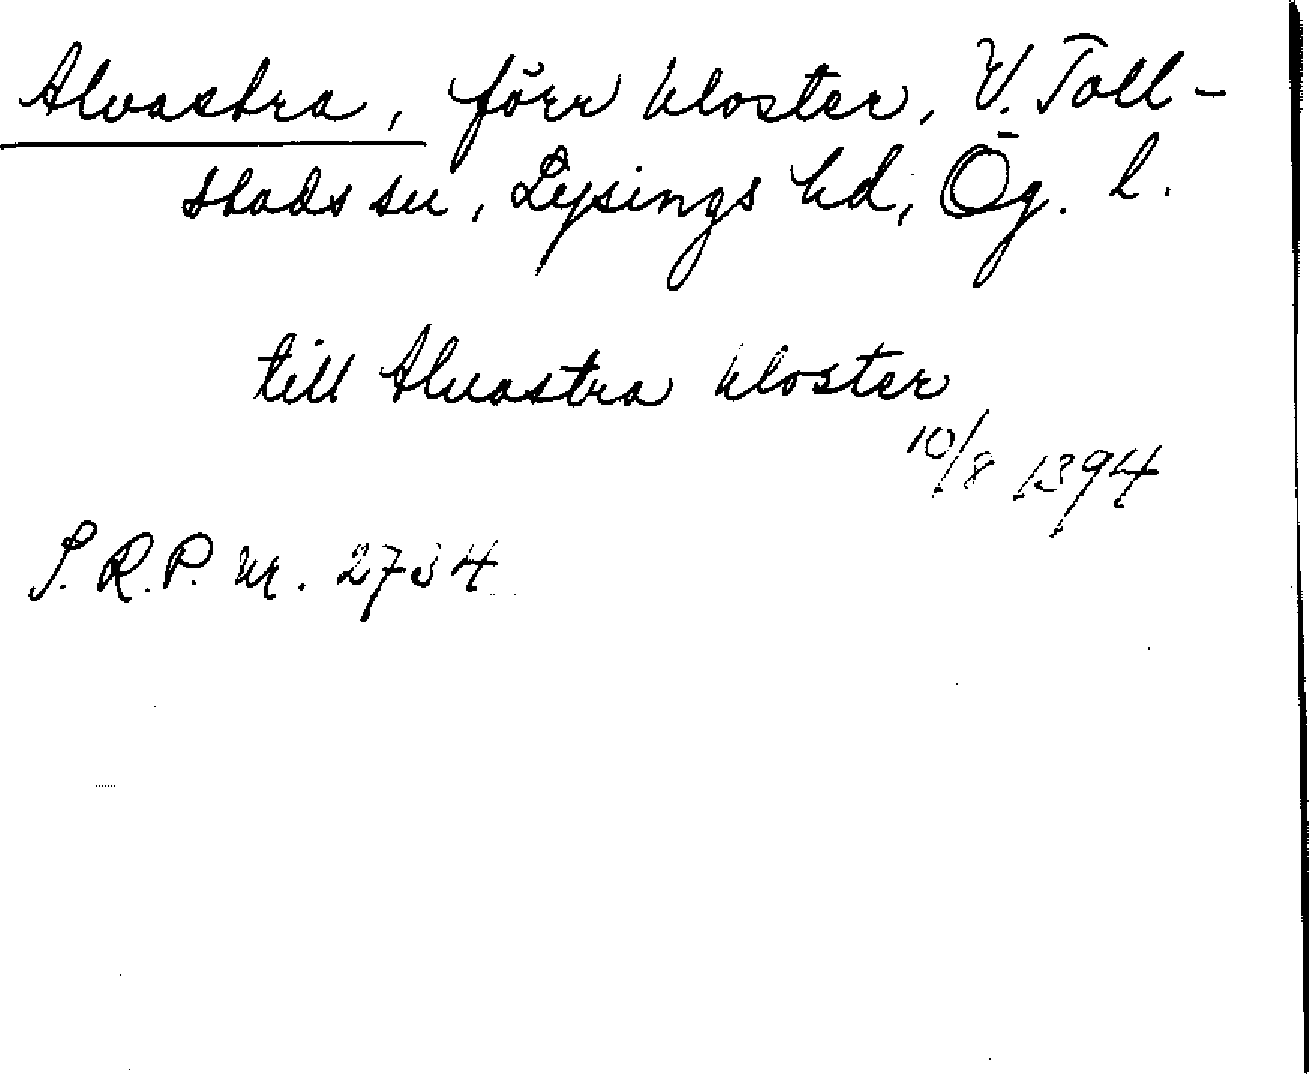 Alvastra, förr kloster, V. Toll-
stads sn, Lysings hd, Ög. l.
till Aluastra kloster
10/8 1394
S.R.P. nr. 2734